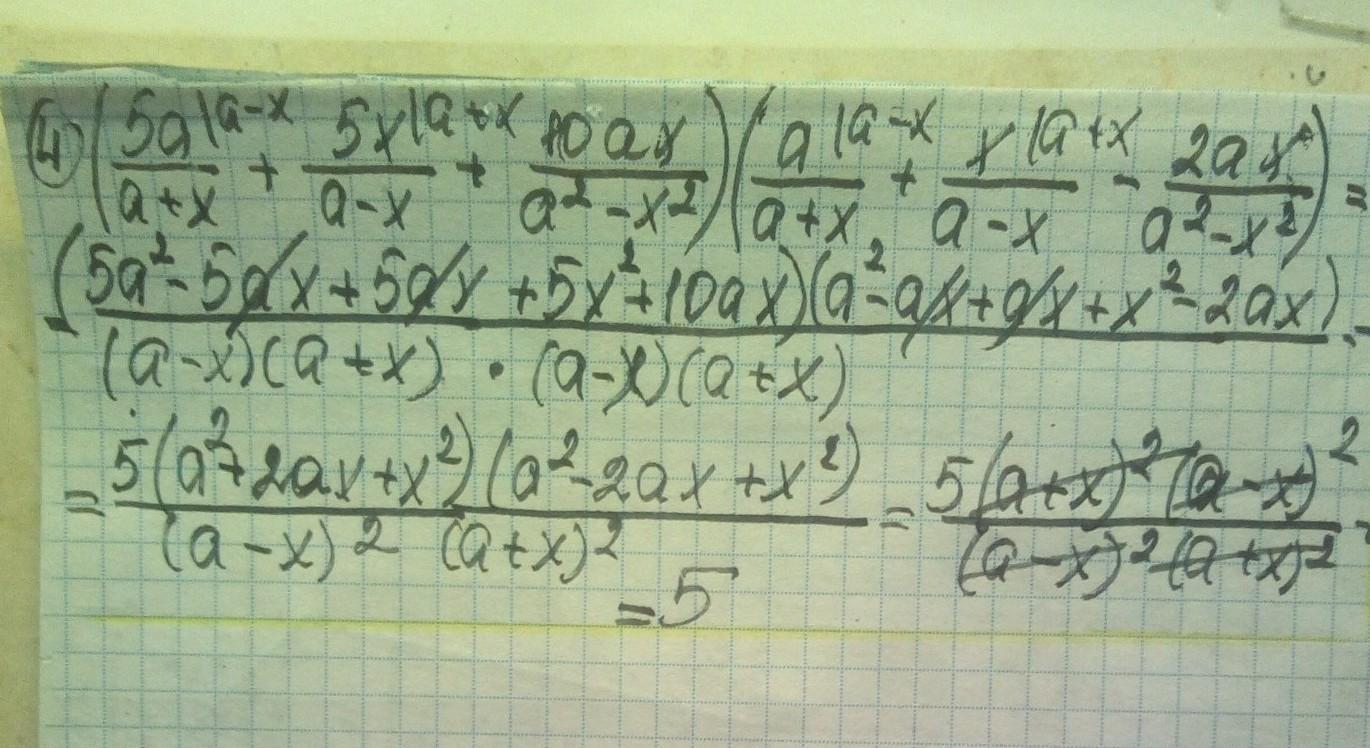 ④ (5a|a-x / a+x + 5x|a+x / a-x + 10ax / a²-x²)(a|a-x / a+x + x|a+x / a-x - 2ax / a²-x²) =
(5a²-5ax+5ax+5x²+10ax)(a²-ax+ax+x²-2ax) / (a-x)(a+x) · (a-x)(a+x) =
= 5(a²+2ax+x²)(a²-2ax+x²) / (a-x)² (a+x)² = 5(a+x)²(a-x)² / (a-x)²(a+x)² =
= 5